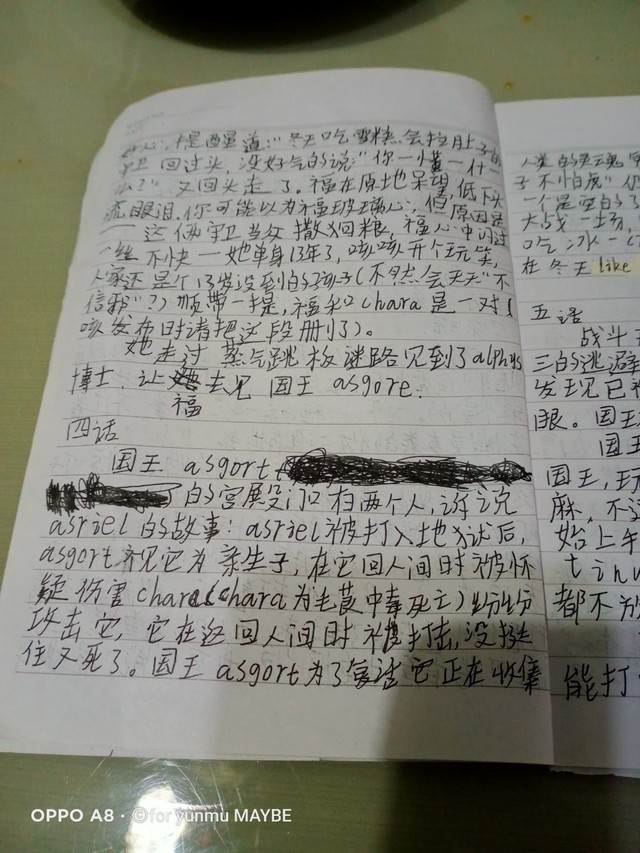 好心,提醒道:"冬天吃雪糕会拉肚子的
守卫回过头,没好气的说"你一懂一什一
么?",又回头走了。福在原地呆望低下头
流眼泪.你可能以为福玻璃心,但原因是
——这俩守卫当众撒狗粮,福心中闪过
一丝不快—她单身13年了,咳咳开个玩笑,
人家还是个13岁没到的孩子(不然会天天"不
信邪"?)顺带一提,福和chara是一对(
咳发布时请把这段删了)。
她走过蒸气跳板谜路见到了alphys
博士,让福去见国王asgore.
四话
国王asgort
的宫殿门口有两个人,诉说
asriel的故事:asriel被打入地狱后,
asgort视它为亲生子,在它回人间时被怀
疑伤害chara(chara为毛茛中毒死亡)纷纷
攻击它,它在返回人间时被打击,没挺
住又死了。国王asgort为了复活它正在收集
人类的灵魂
子不怕虎"
一个是空的
大战一场,
吃冰
在冬天like
五话
战斗
三的逃避
发现已被
眼。国王
国王
国王,玩
麻,不
始上午
tinu
都不放
能打
OPPO A8· ©for yunmu MAYBE